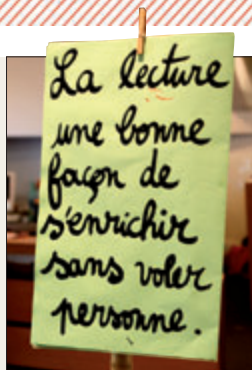 La lecture
une bonne
façon de
s'enrichir
sans voler
personne.